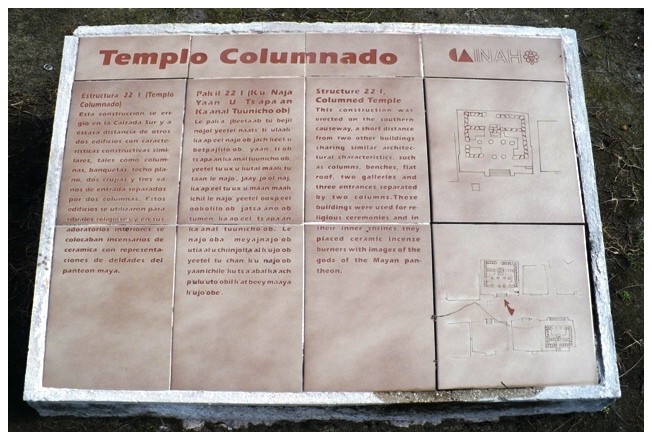 Templo Columnado
INAH
Estructura 22-I (Templo
Columnado)
Esta construcción se eri-
gió en la Calzada Sur y a
escasa distancia de otros
dos edificios con caracte-
rísticas constructivas simi-
lares, tales como colum-
nas, banquetas, techo pla-
no, dos crujías y tres va-
nos de entrada separados
por dos columnas. Estos
edificios se utilizaron para
rituales religiosos y en sus
adoratorios interiores se
colocaban incensarios de
cerámica con representa-
ciones de deidades del
panteón maya.
Pak'il 22-I (K'u Naja
Yaan U Ts'apa'an
Ka'anal Tuunicho'ob)
Le pak'a
najol yeetel naats ti ulaak'
ka'ap'eel najo'ob
betpajlilo'ob, yaan ti'ob
ts'apaan ka'anal tuunicho'ob,
yeetel tu'ux u kutal maak tu
taan le najo',
ka'ap'eel tu'ux u maan maak
ichil le najo' yeetel oxp'eel
ookolilo'ob jatsa'ano'ob
tumen ka'ap'eel ts'apa'an
ka'anal tuunicho'ob. Le
najo'oba' meyajnajo'ob
yeetel tu chan k'u najo'ob
yaan ichile' ku ts'a'abal ka'ach
maaya
k'ujo'obe'.
Structure 22-I,
Columned Temple
This construction was
erected on the southern
causeway, a short distance
from two other buildings
sharing similar architec-
tural characteristics, such
as columns, benches, flat
roof, two galleries and
three entrances separated
by two columns. These
buildings were used for re-
ligious ceremonies and in
their inner shrines they
placed ceramic incense
burners with images of the
gods of the Mayan pan-
theon.